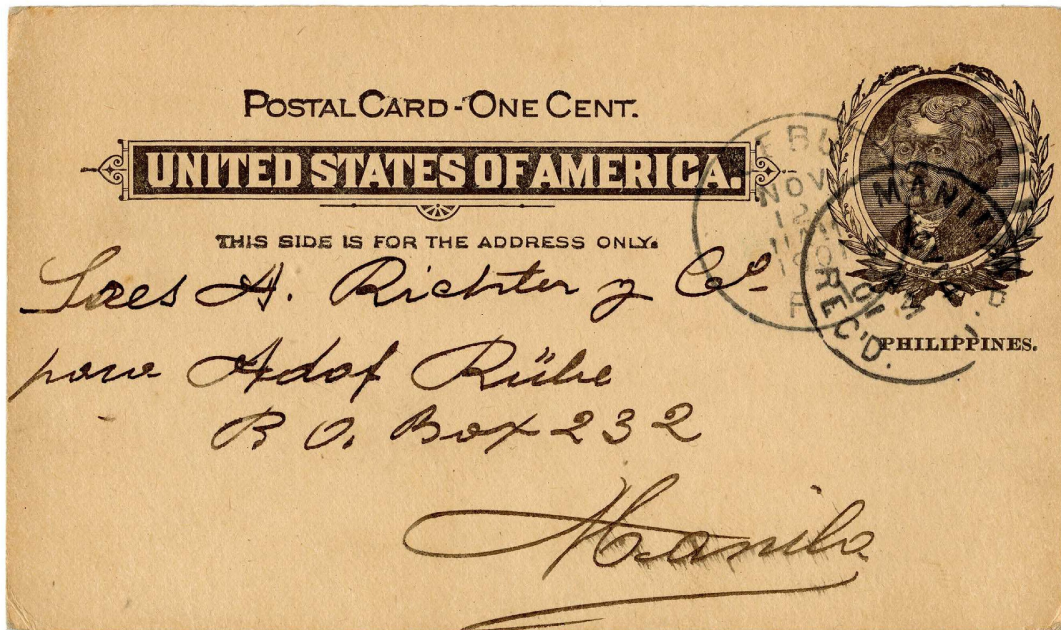 POSTAL CARD-ONE CENT.
UNITED STATES OF AMERICA.
THIS SIDE IS FOR THE ADDRESS ONLY.
PHILIPPINES.
NOV
12
REC'D.
A. Richter y Co
para Adof Rübe
P. O. Box 232
Manila